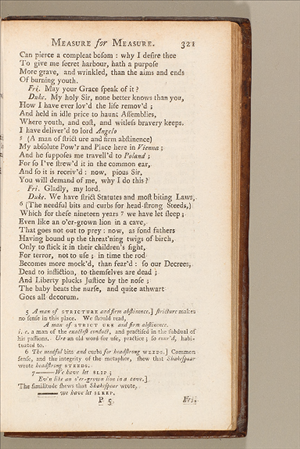 MEASURE for MEASURE. 321
Can pierce a compleat bosom : why I desire thee
To give me secret harbour, hath a purpose
More grave, and wrinkled, than the aims and ends
Of burning youth.
Fri. May your Grace speak of it ?
Duke. My holy Sir, none better knows than you,
How I have ever lov'd the life remov'd ;
And held in idle price to haunt Assemblies,
Where youth, and cost, and witless bravery keeps.
I have deliver'd to lord Angelo
5 (A man of strict ure and firm abstinence)
My absolute Pow'r and Place here in Vienna ;
And he supposes me travell'd to Poland ;
For so I've strew'd it in the common ear,
And so it is receiv'd : now, pious Sir,
You will demand of me, why I do this ?
Fri. Gladly, my lord.
Duke. We have strict Statutes and most biting Laws,
6 (The needful bits and curbs for head-strong Steeds,)
Which for these nineteen years 7 we have let sleep ;
Even like an o'er-grown lion in a cave,
That goes not out to prey : now, as fond fathers
Having bound up the threat'ning twigs of birch,
Only to stick it in their children's sight,
For terror, not to use ; in time the rod
Becomes more mock'd, than fear'd : so our Decrees,
Dead to infliction, to themselves are dead ;
And Liberty plucks Justice by the nose ;
The baby beats the nurse, and quite athwart
Goes all decorum.
5 A man of STRICTURE and firm abstinence.] stricture makes
no sense in this place. We should read,
A man of STRICT URE and firm abstinence.
i. e. a man of the exactest conduct, and practised in the subdual of
his passions. Ure an old word for use, practice ; so enur'd, habi-
tuated to.
6 The needful bits and curbs for headstrong WEEDS.] Common
sense, and the integrity of the metaphor, shew that Shakespear
wrote headstrong STEEDS.
7 —We have let SLIP ;
Ev'n like an o'er-grown lion in a cave.]
The similitude shews that Shakespear wrote,
—we have let SLEEP.
P 5 Fri.